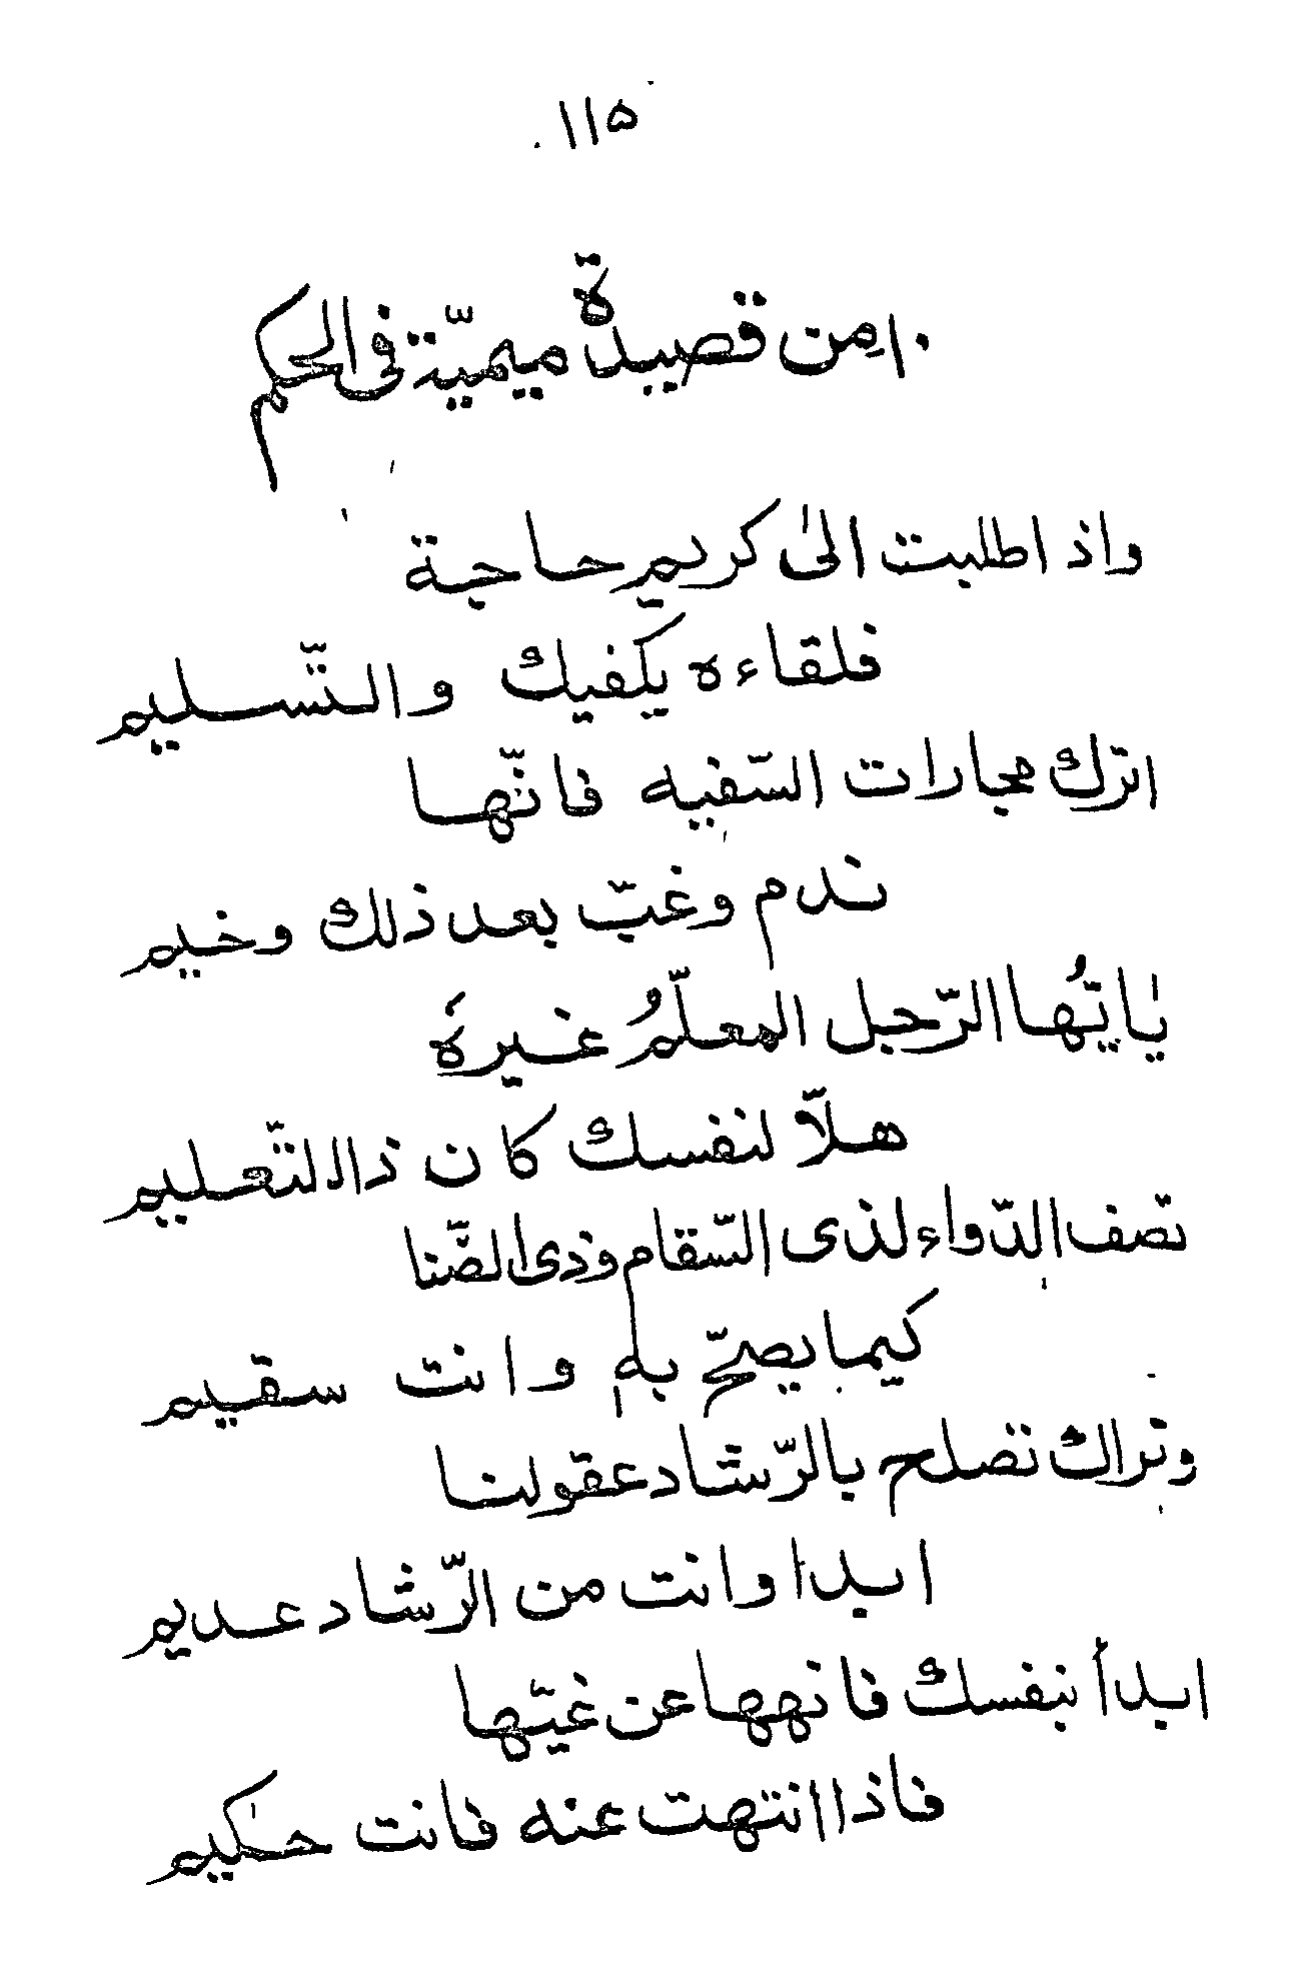 ١١٥
١٠ من قصيدة ميميّة فى الحكم
واذا طلبت الىٰ كريم حاجة
فلقاءه يكفيك والتّسليم
اترك مجارات السّفيه فانّها
ندم وغبّ بعد ذلك وخيم
يٰايّهُا الرّجل المعلّمُ غيرهُ
هلاّ لنفسك كان ذا التّعليم
تصف الدّواء لذى السّقام وذى الضّنا
كيما يصحّ به وانت سقيم
وتراك تصلح بالرّشاد عقولنا
ابدا وانت من الرّشاد عديم
ابدأ بنفسك فانهها عن غيّها
فاذا انتهت عنه فانت حكيم